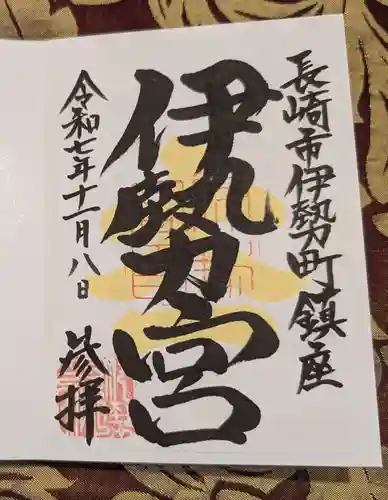 長崎市伊勢町鎮座
伊勢宮
令和七年十一月八日
参拝